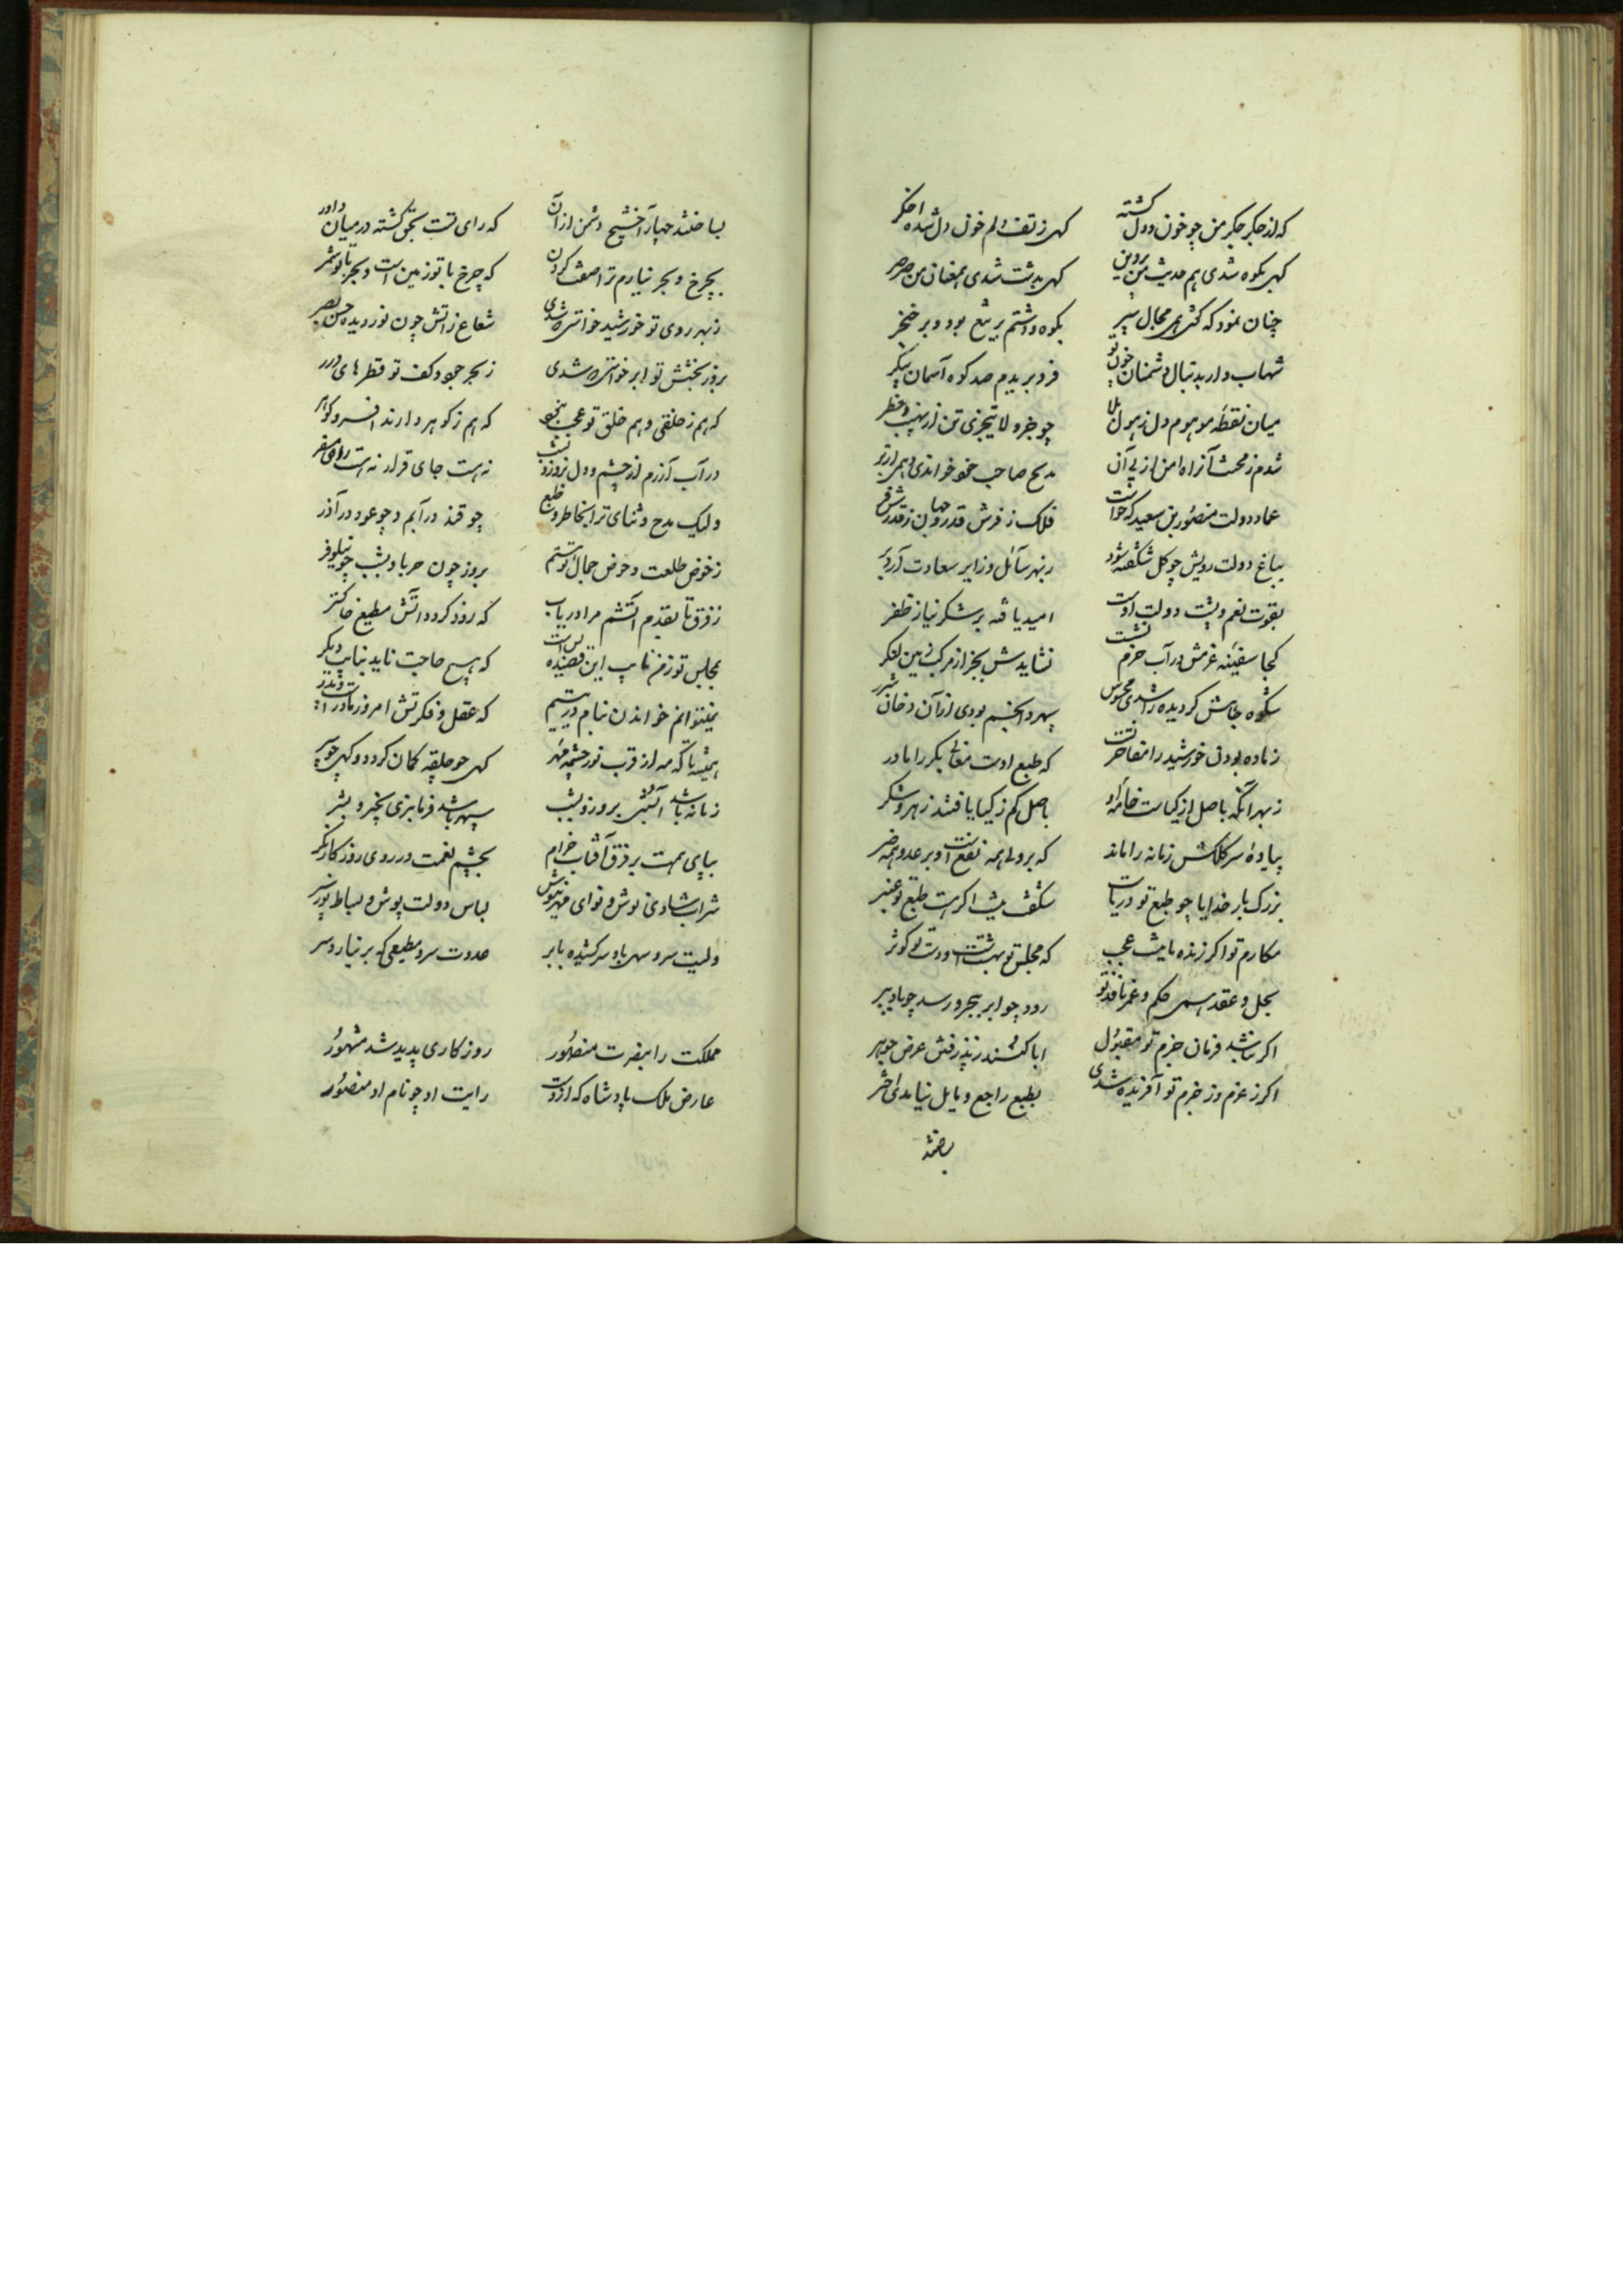 که از جگر جگر من چو خون و دل گشته گهی ز تف دلم خون دل شده اخگر
گهی بکوه شدی هم حدیث من پروین گهی بدشت شدی همعنان من صرصر
چنان نمود که کشتی همی مجال سپر بکوه و دشتم بر تیغ بود و بر خنجر
شهاب وار بدنبال دشمنان چون تو فرو بریدم صد کوه آسمان پیکر
میان نقطه موهوم دل ز هول بلا چو جزو لا یتجزی تن از نهیب و خطر
شدم ز محنت آزاد من از پی آن مدیح صاحب خواندی همی از بر
عماد دولت منصور بن سعید که خواست فلک ز فرش قدر و جهان ز قدرش فر
بباغ دولت رویش چو گل شکفته شود ز بهر سائل و زایر سعادت آرد بر
بقوت نعم و پشت دولت اوست امید یافته بر لشکر نیاز ظفر
کجا سفینه عزمش در آب حزم نشست نشایدش بجز از مرکز زمین لنگر
شکوه جاهش گر دیده را شدی محسوس سپهر و انجم بودی از آن دخان و شرر
زاده بودن خورشید را مفاخر تست که طبع اوست معالی بکر را مادر
ز بهر آنکه باصل از گیاست خامه او باصل کم ز گیا یافتند زهر و شکر
پیاده سر کلکش زمانه را ماند که بر ولی همه نفعست و بر عدو همه ضر
بزرگ بار خدایا چو طبع تو دریاست شگفت نیست اگر هست طبع تو عنبر
مکارم تو اگر زنده ماند نیست عجب که مجلس تو بهشتست و دست تو کوثر
بحل و عقد همی حکم و عزم نافذ تو رود چو ابر ببحر و رسد چو باد ببر
اگر نباشد فرمان حزم تو مقبول ابا کنند ز پذرفتن عرض جوهر
اگر ز عزم وز حزم تو آفریده شدی بطبع راجع و مایل نیامدی اختر
بساختند
بساختند چهار آخشیج دشمن از آن که رای تست بحق گشته در میان داور
بچرخ و بحر نیارم ترا صفت کردن که چرخ با تو زمین است و بحر با تو شمر
ز بهر روی تو خورشید خواستی که شدی شعاع ذاتش چون نور دیده حس بصر
بروز بخشش تو ابر خواستی که شدی ز بحر جود کف تو قطرهای درر
که هم ز خلقی و هم خلق تو عجب بنجو که هم ز گوهر دارند افسر و گوهر
در آب و آذرم از چشم و دل بروز و بشب نه هست جای قرار نه هست روی سفر
ولیک مدح و ثنای ترا بخاطر و طبع چو قند در آبم و چو عود در آذر
ز خوض طلعت و حوض جمال تو هستم بروز چون حربا و بشب چو نیلوفر
ز فرق تا بقدم آتشم مرا دریاب که زود گردد آتش مطیع خاکستر
بمجلس تو ز من نایب این قصیده بس است که هیچ حاجت ناید بنایب دیگر
یتیم نتوانم خواندن بنام در یتیم که عقل و فکرتش امروز مادرست و پدر
همیشه تا که مه از قرب نور چشمه مهر گهی چو حلقه کمان گردد و گهی چو سپر
زمانه باشد آبستن بروز و بشب سپهر باشد فرمانبری بخیر و بشر
بپای همت بر فرق آفتاب خرام بچشم نعمت در روی روزگار نگر
شراب شادی نوش و نوای مهر نیوش لباس دولت پوش و بساط نور سپر
ولیت سرو سهی باد سر کشیده بابر عدوت سرو مطیعی که بر نیارد سر
مملکت را بنصرت منصور روزگاری پدید شد مشهور
عارض ملک پادشاه که ازوست رایت او چو نام او منصور